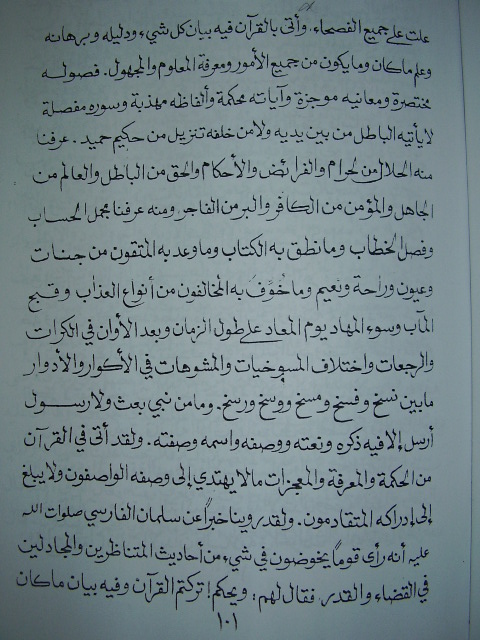 علت على جميع الفصحاء، وأتى بالقرآن فيه بيان كل شيء ودليله وبرهانه
وعلم ما كان وما يكون من جميع الأمور ومعرفة المعلوم والمجهول. فصوله
مختصرة ومعانيه موجزة وآياته محكمة وألفاظه مهذبة وسوره مفصلة
لا يأتيه الباطل من بين يديه ولا من خلفه تنزيل من حكيم حميد. عرفنا
منه الحلال من الحرام والفرائض والأحكام والحق من الباطل والعالم من
الجاهل والمؤمن من الكافر والبر من الفاجر ومنه عرفنا مجمل الحساب
وفصل الخطاب وما نطق به الكتاب وما وعد به المتقون من جنات
وعيون وراحة ونعيم وما خُوّفَ به المخالفون من أنواع العذاب وقبح
المآب وسوء المهاد يوم المعاد على طول الزمان وبعد الأوان في الكرات
والرجعات واختلاف المسوخيات والمشوهات في الأكوار والأدوار
ما بين نسخ وفسخ ومسخ ووسخ ورسخ. وما من نبي بعث ولا رسول
أرسل إلا فيه ذكره ونعته ووصفه واسمه وصفته. ولقد أتى في القرآن
من الحكمة والمعرفة والمعجزات ما لا يهتدي إلى وصفه الواصفون ولا يبلغ
إلى إدراكه المتقادمون. ولقد روينا خبراً عن سلمان الفارسي صلوات الله
عليه أنه رأى قوماً يخوضون في شيء من أحاديث المتناظرين والمجادلين
في القضاء والقدر، فقال لهم: ويحكم! تركتم القرآن وفيه بيان ما كان
١٠١